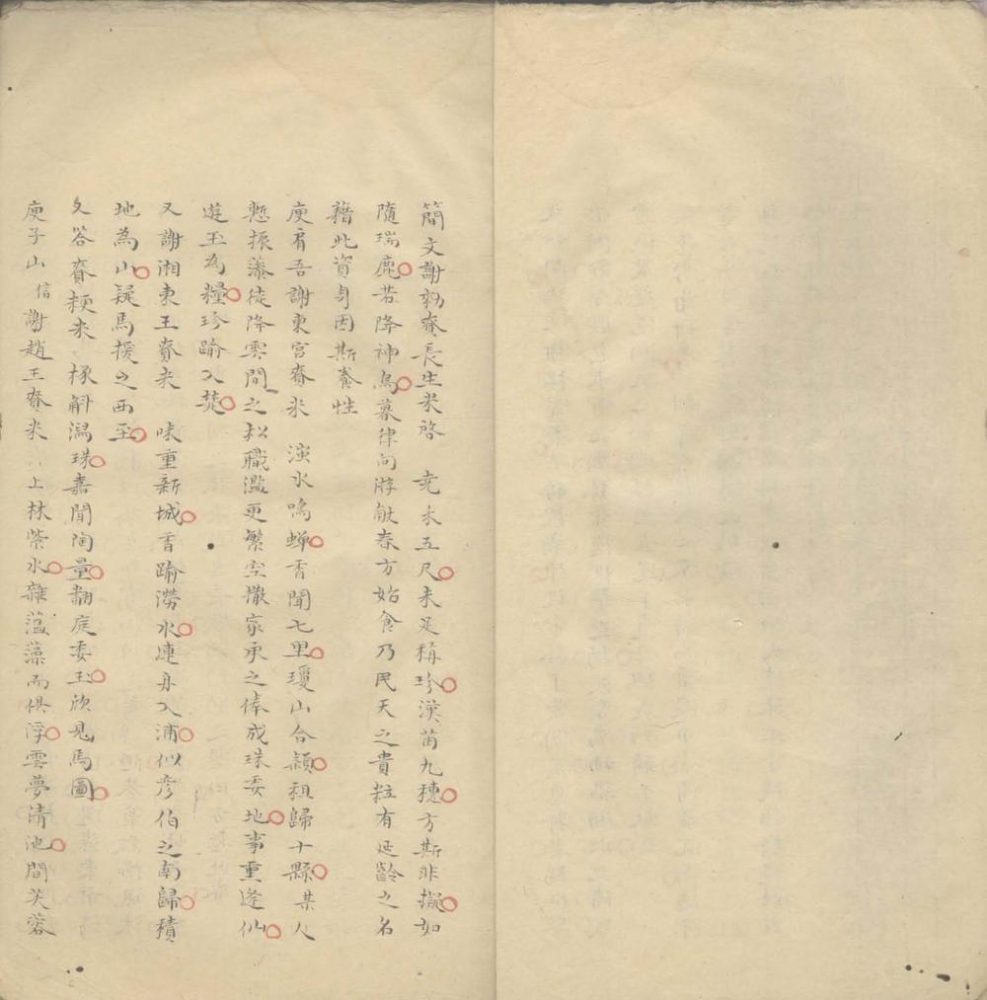 簡文謝勑賚長生米啓　堯禾五尺未足稱珍漢苗九穗方斯非擬如
隨瑞鹿若降神烏暮律向游獻春方始食乃民天之貴粒有延齡之名
藉此資身因斯養性
庾肩吾謝東宮賚米　滍水鳴蟬香聞七里瓊山合穎租歸十縣某人
慙振藻徒降雲間之松職濫更繁空撒家承之俸成珠委地事重逢仙
遊玉為糧珍踰入楚
又謝湘東王賚米　味重新城香踰澇水連舟入浦似彥伯之南歸積
地為山疑馬援之西至
又答賚粳米　椽斛瀉珠喜聞陶量翻庭委玉欣見馬圖
庾子山信謝趙王賚米　上林紫水雜薀藻而俱浮雲夢清池間芙蓉